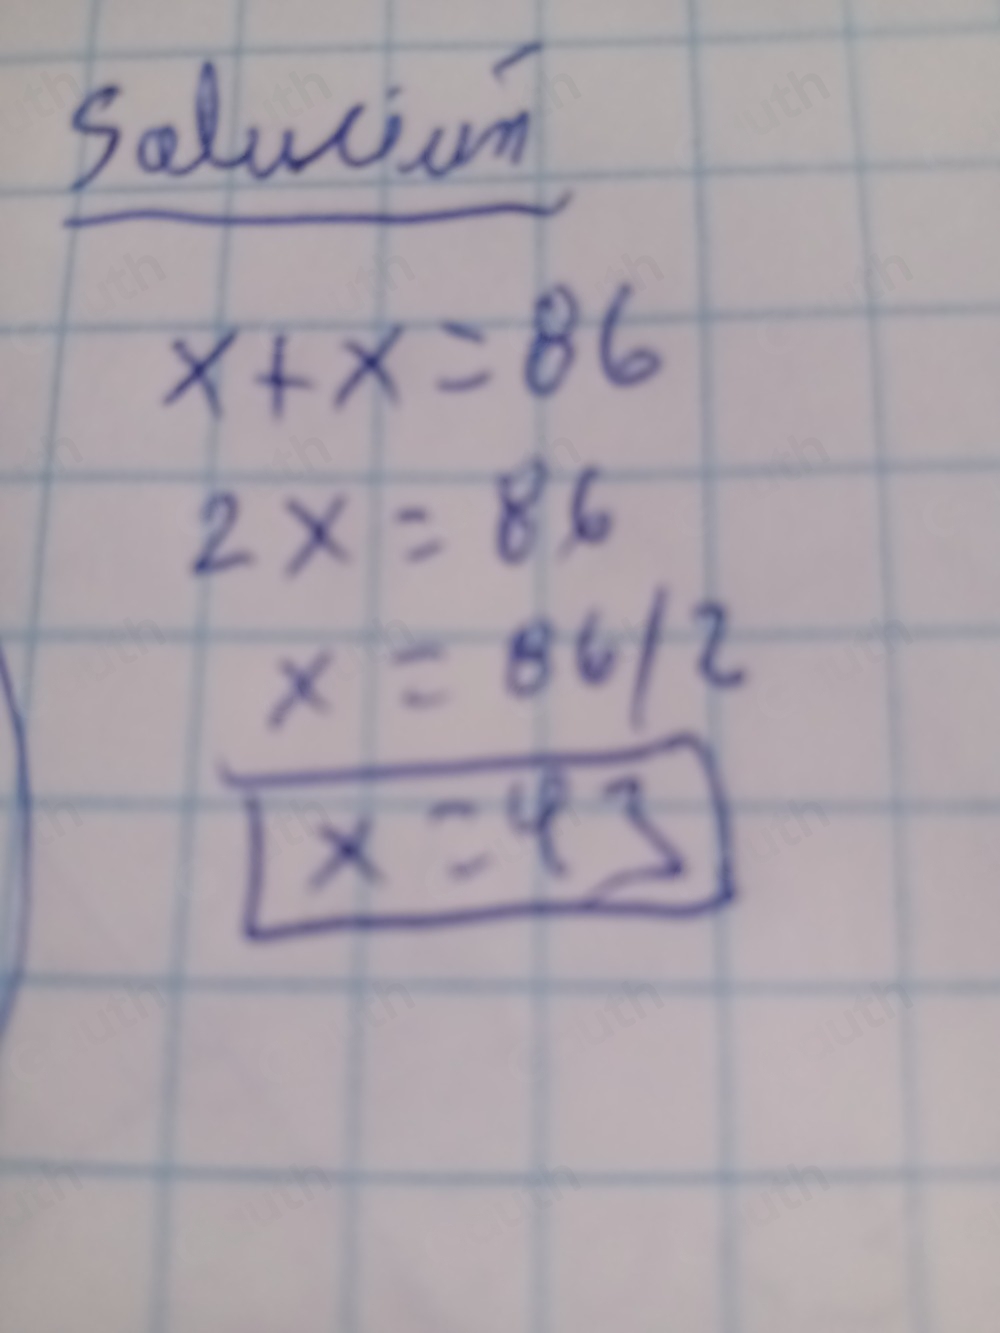 Solución
x+x=86
2x=86
x=86/2
x=43